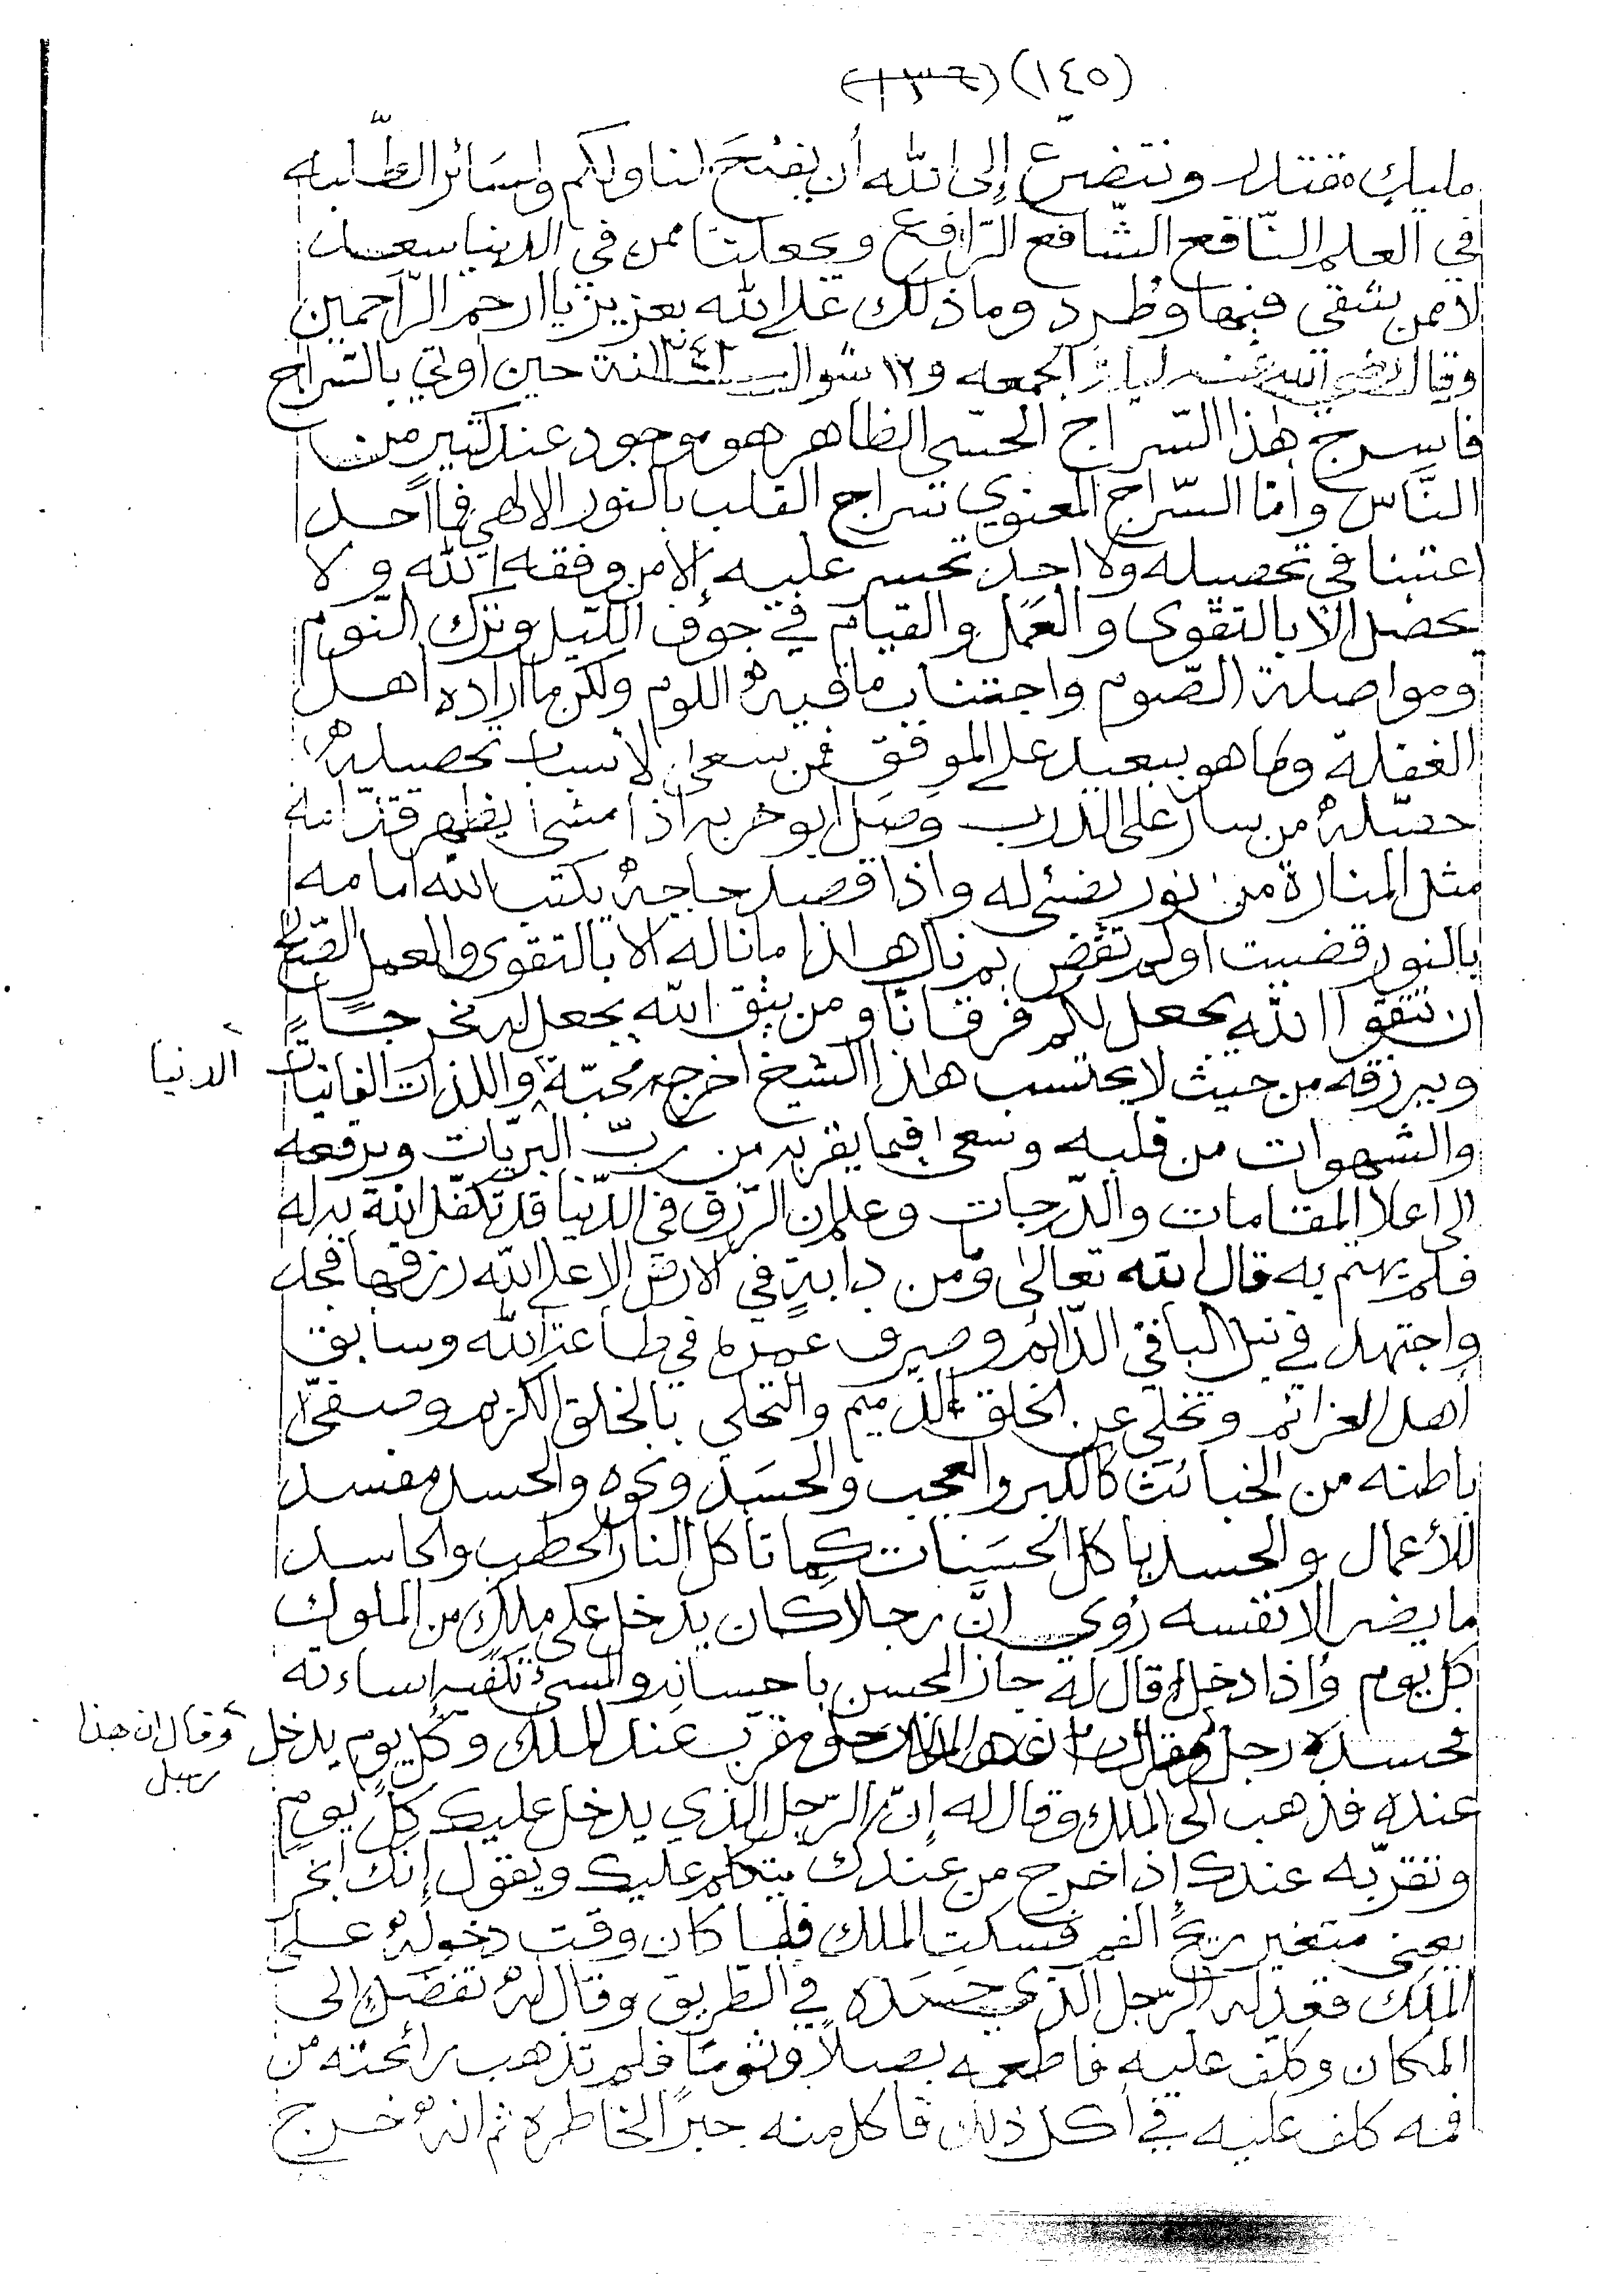 (١٤٥) (١٣٦)
مليك مقتدر ونتضرع إلى الله أن يفتح لنا ولكم ولسائر الطلبه
في العلم النّافع الشّافع الرّافع ويجعلنا ممن في الدنيا سعد
لا ممن شقي فيها وطرد وما ذلك على الله بعزيز يا ارحم الرّاحمين
وقال رضي الله عنه ليلة الجمعه و١٢ شوال سنة حين اوتي بالسّراج
فاسرج هذا السّراج الحسّي الظاهر هو موجود عند كثير من
النَّاس وامّا السّراج المعنوي سراج القلب بالنور الالهي فما احد
اعتنا في تحصيله ولا احد تحسر عليه إلا من وفقه الله ولا
يحصل الا بالتقوى والعمل والقيام في جوف الليل وترك النوم
ومواصلة الصّوم واجتناب ما فيه اللوم ولكن ما اراده اهل
الغفلة وما هو ببعيد على الموفق فمن سعى لاسباب تحصيله
حصّله من سار على الدرب وصل ابو خربه اذا مشى يظهر قدامه
مثل المنارة من نور يضئ له واذا قصد حاجة يكتب الله امامه
بالنور قضيت او لم تقض بم نال هذا ما ناله الا بالتقوى والعمل الصّالح
ان تتقوا الله يجعل لكم فرقانًا ومن يتق الله يجعل له مخرجًا
ويرزقه من حيث لا يحتسب هذا الشيخ اخرج محبّة واللذات الفانيات
الدنيا
والشهوات من قلبه وسعى فيما يقربه من ربّ البريّات ويرفعه
الى اعلا المقامات والدّرجات وعلم ان الرّزق في الدّنيا قد تكفّل الله به له
فلم يهتم به قال الله تعالى وما من دابةٍ في الارض الا على الله رزقها فجد
واجتهد في نيل الباقي الدّائم وصرف عمره في طاعة الله وسابق
أهل العزائم وتخلي عن الخلق الذميم والتحلي بالخلق الكريم وصفّى
باطنه من الخبائث كالكبر والعجب والحسَد ونحوه والحسد مفسد
للأعمال والحسد ياكل الحسَنات كما تاكل النار الحطب والحاسد
ما يضر الا نفسه رُوي انّ رجلا كان يدخل على ملكٍ من الملوك
كل يوم وإذا دخل قال له جاز المحسن باحسانه والمسئ تكفيه إساءته
فحسده رجل مقرب عند الملك وكل يوم يدخل
وقال ان هذا
رجل
عنده فذهب الى الملك وقال له إنّ الرّجل الذي يدخل عليك كل يوم
وتقربّه عندك إذا خرج من عندك يتكلم عليك ويقول إنك أبخر
يعني متغير ريح الفم فسكت الملك فلما كان وقت دخوله على
الملك قعد له الرّجل الذي حسَده في الطّريق وقال له تفضّل إلى
المكان وكلف عليه فاطعمه بصلاً وثومًا فلم تذهب رائحته من
فمه كلف عليه في أكل ذلك فاكل منه جبرًا لخاطره ثم انه خرج